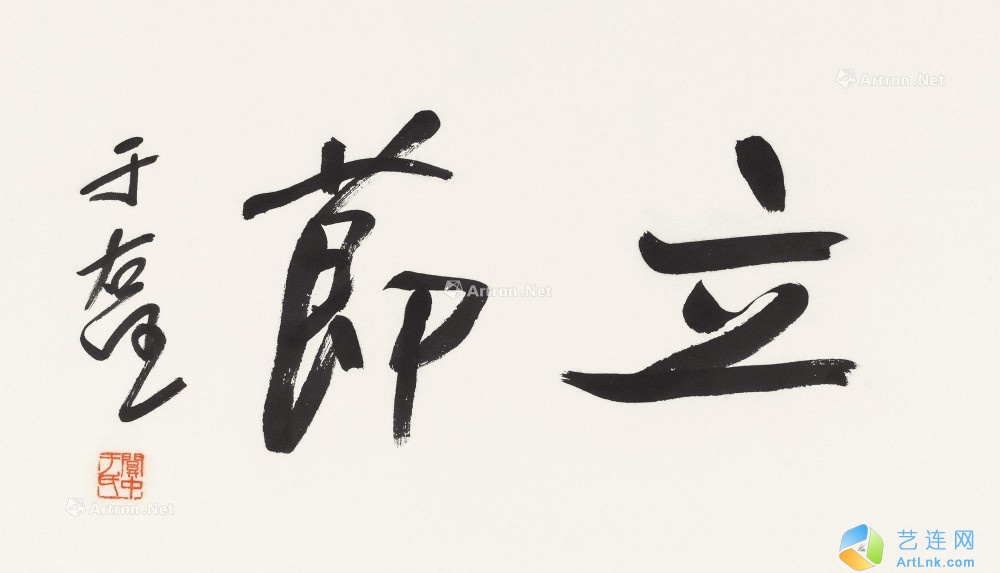 立節
于右任
關中于氏
Artron.Net
Artron.Net
Artron.Net
艺连网
ArtLnk.com